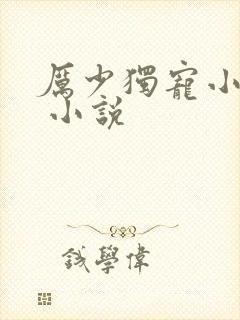 厲少獨寵小
小説
錢學偉